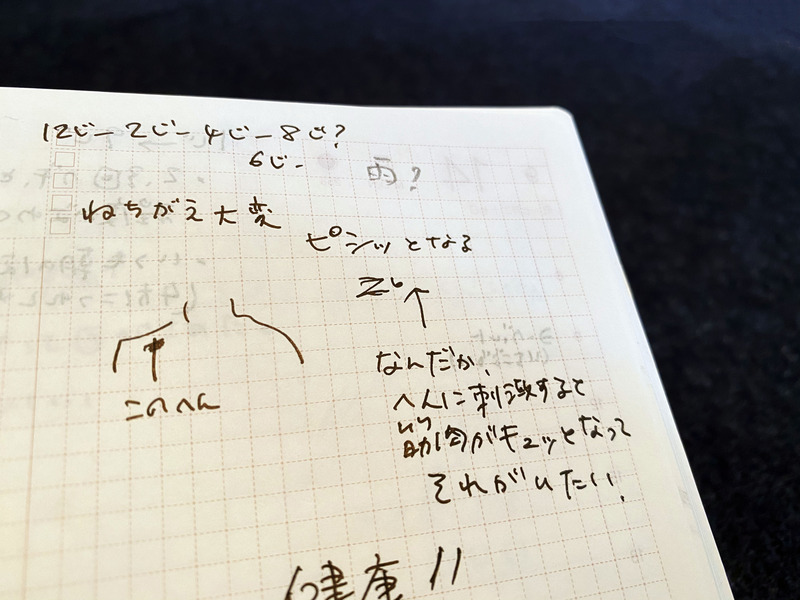 12じ－2じ－4じ－8じ?
6じ－
雨?
ねちがえ大変
ピシッとなる
このへん
なんだか、
へんに刺激すると
筋肉がギュッとなって
それがいたい。
健康!!